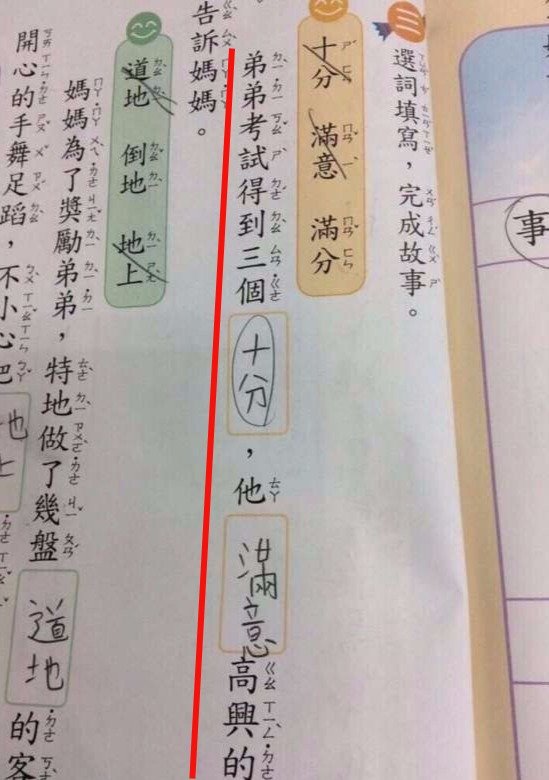 三
選詞填寫，完成故事。
十分 滿意 滿分
弟弟考試得到三個十分，他滿意高興的
告訴媽媽。
道地 倒地 地上
媽媽為了獎勵弟弟，特地做了幾盤道地的客
開心的手舞足蹈，不小心把地上
事